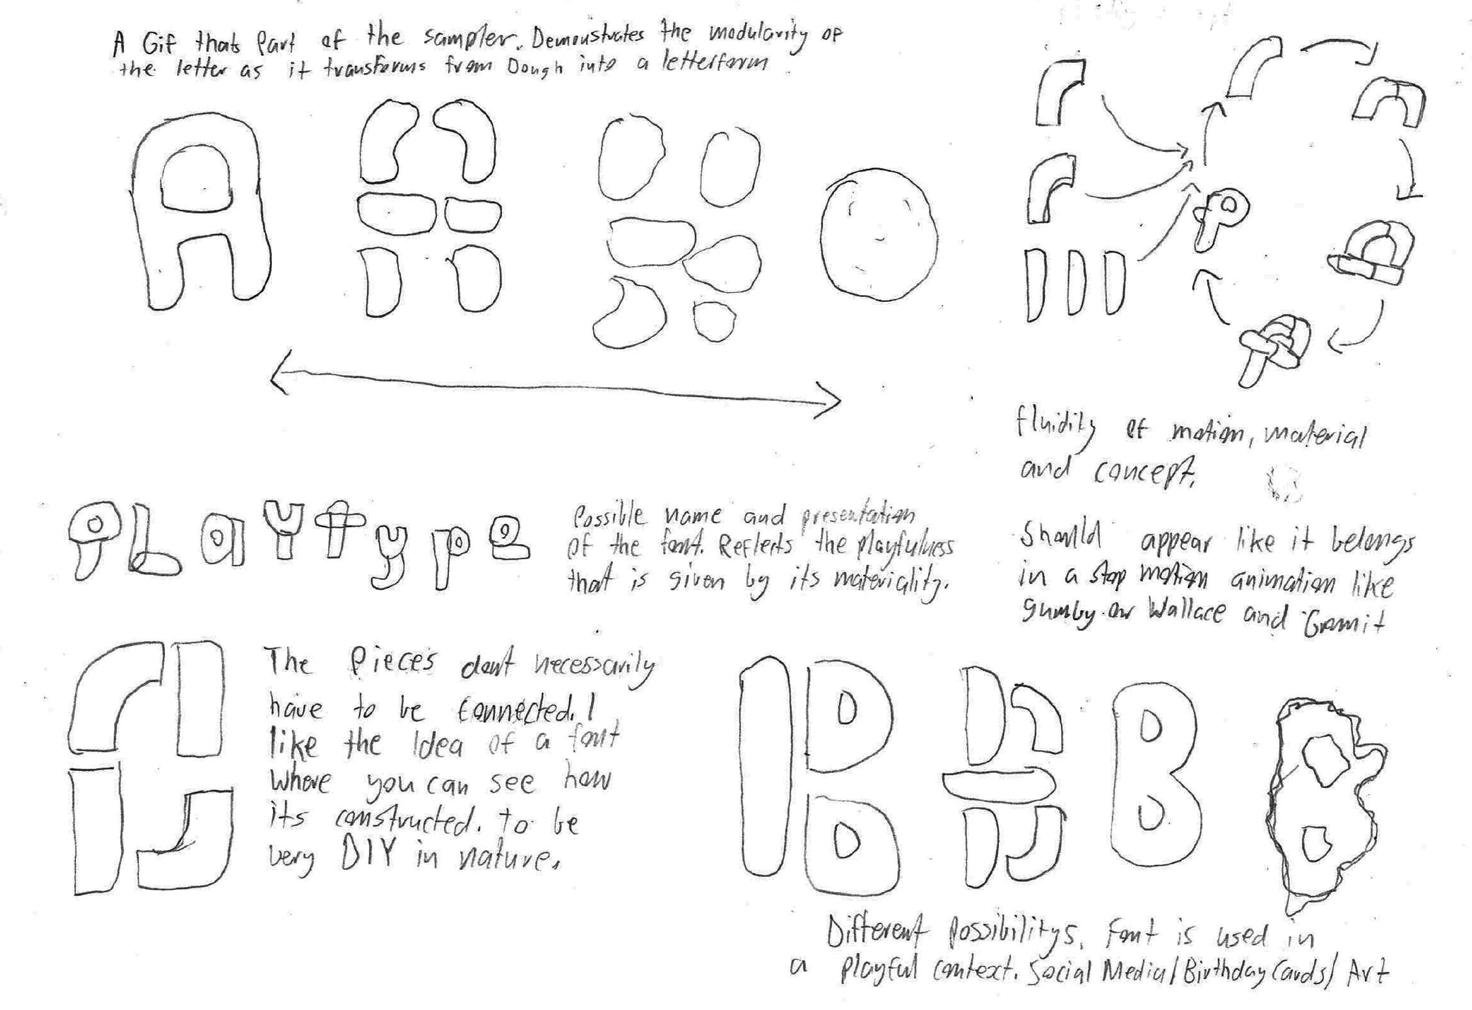 A Gif thats Part of the sampler. Demonstrates the modularity of
the letter as it transforms from Dough into a letterform.
A
P
fluidity of motion, material
and concept.
PLaYtype
Possible name and presentation
of the font. Reflects the playfulness
that is given by its materiality.
Should appear like it belongs
in a stop motion animation like
Gumby or Wallace and Gromit
The Pieces dont necessarily
have to be connected. I
like the Idea of a font
where you can see how
its constructed. to be
very DIY in nature.
B B B B
Different Possibilitys. Font is used in
a Playful context. Social Media/Birthday Cards/ Art